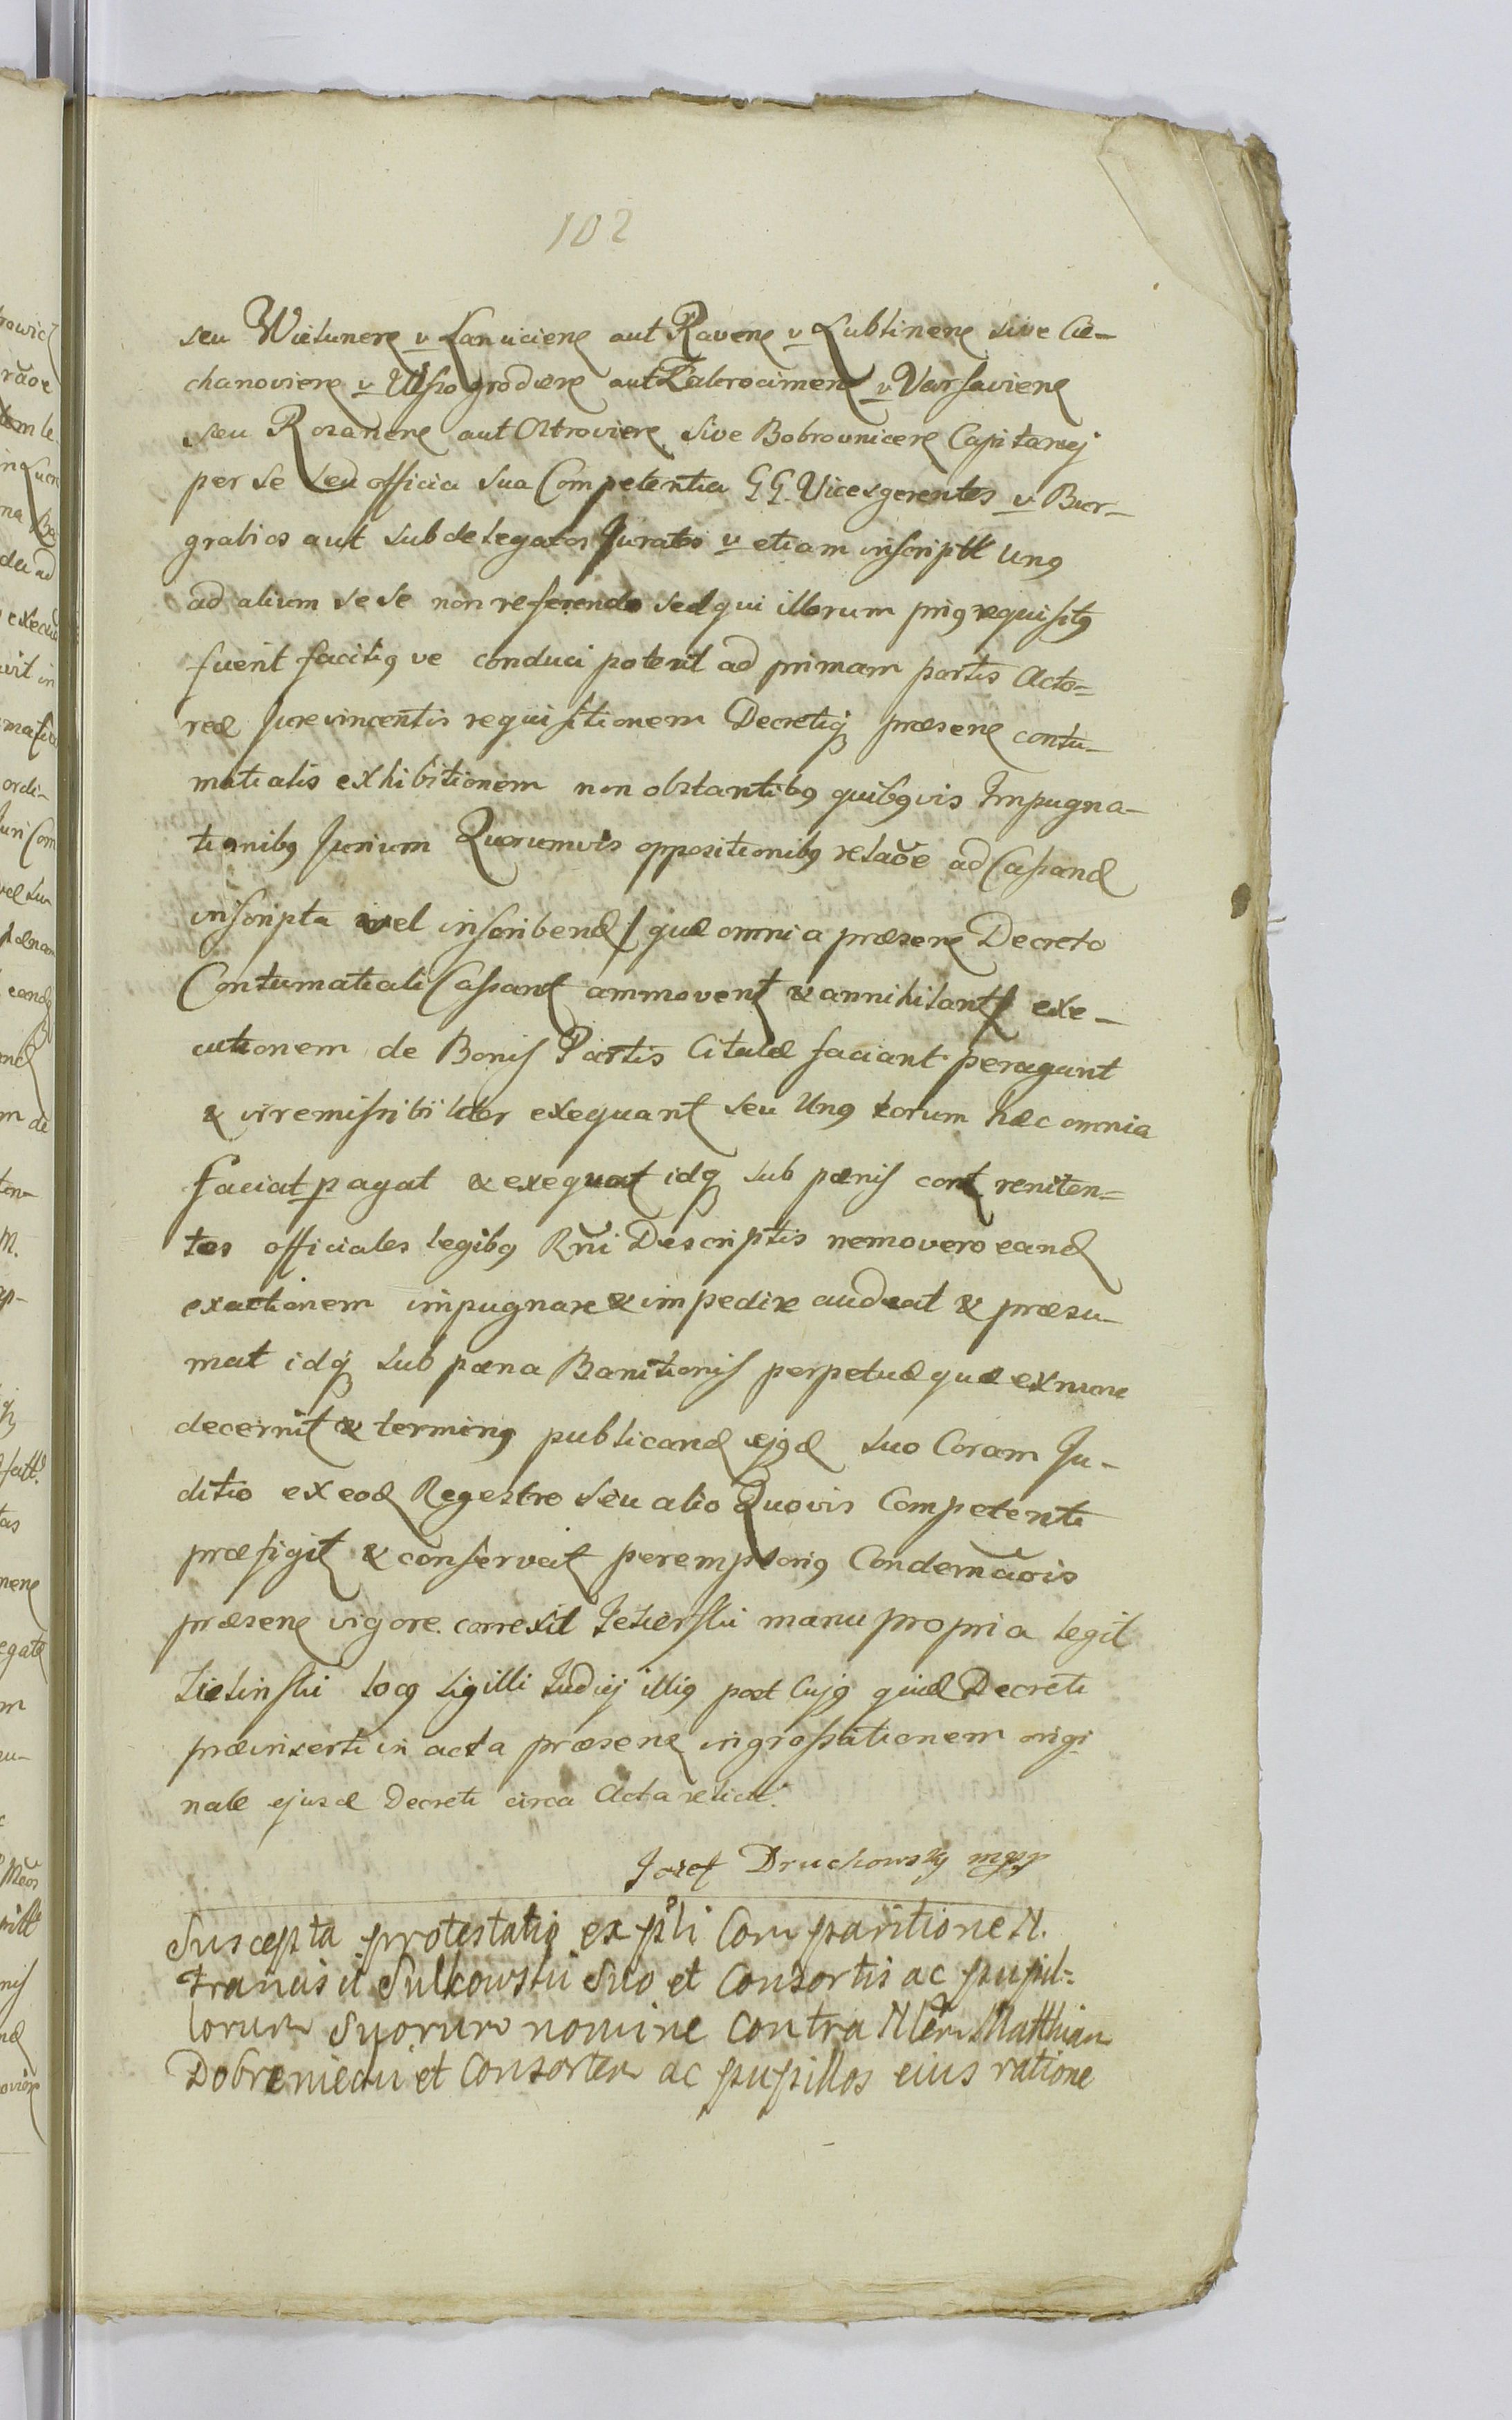 102
seu Wielunen v Lanuicien aut Raven v Lublinen sive Cie-
chanovien v Visogrodien aut Zakrocimen v Varsavien
seu Rozanen aut Ostrovien sive Bobrovnicen Capitanej
per se seu officia sua Competentia GG. Vicesgerentes v Bur-
grabios aut subdelegatos Juratos v etiam inscriptt Unq
ad alium se se non referendo sed qui illorum priq requisitq
fuerit faciliq ve conduci poterit ad primam partis Acto=
reæ Jurevincentis requisitionem Decretiq præsen contu-
matialis exhibitionem non obstantibq quibqvis Impugna-
tionibq Jurium Quorumvis oppositionibq relaõe ad Cassand
inscripta vel inscribend / quæ omnia præsen Decreto
Contumatiali Cassant ammovent & annihilant / exe-
cutionem de Bonis Partis Citatæ faciant peragant
& irremissibiliter exequant seu Unq eorum hæc omnia
faciat pagat & exequat idq sub pænis cont reniten=
tes officiales legibq Rñi Descriptis nemo vero eand
exactionem impugnare & impedire audeat & præsu-
mat idq sub pæna Banitionis perpetuæ quæ ex nunc
decernit & terminq publicand ejqd suo Coram Ju-
ditio ex eod Regestro seu alio Quovis Competenti
præfigit & conservat peremptoriq Condemñaõis
præsen vigore. correxit Jezierski manu propria legit
Zielinski locq sigilli Judicij illiq post Cujq quid Decreti
præinserti in acta præsen ingrossationem origi
nale ejusd Decreti circa Acta relict.
Jozef Druchowsky mpp
Suscepta protestatio ex psti Comparitione N.
Francisci Sulkowski suo et Consortis ac pupil=
lorum suorum nomine contra Nlem Matthiam
Dobreniecki et Consortem ac pupillos eius ratione